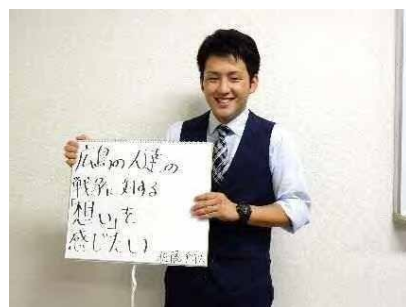 広島の人達の
戦争に対する
「想い」を
感じたい
佐藤